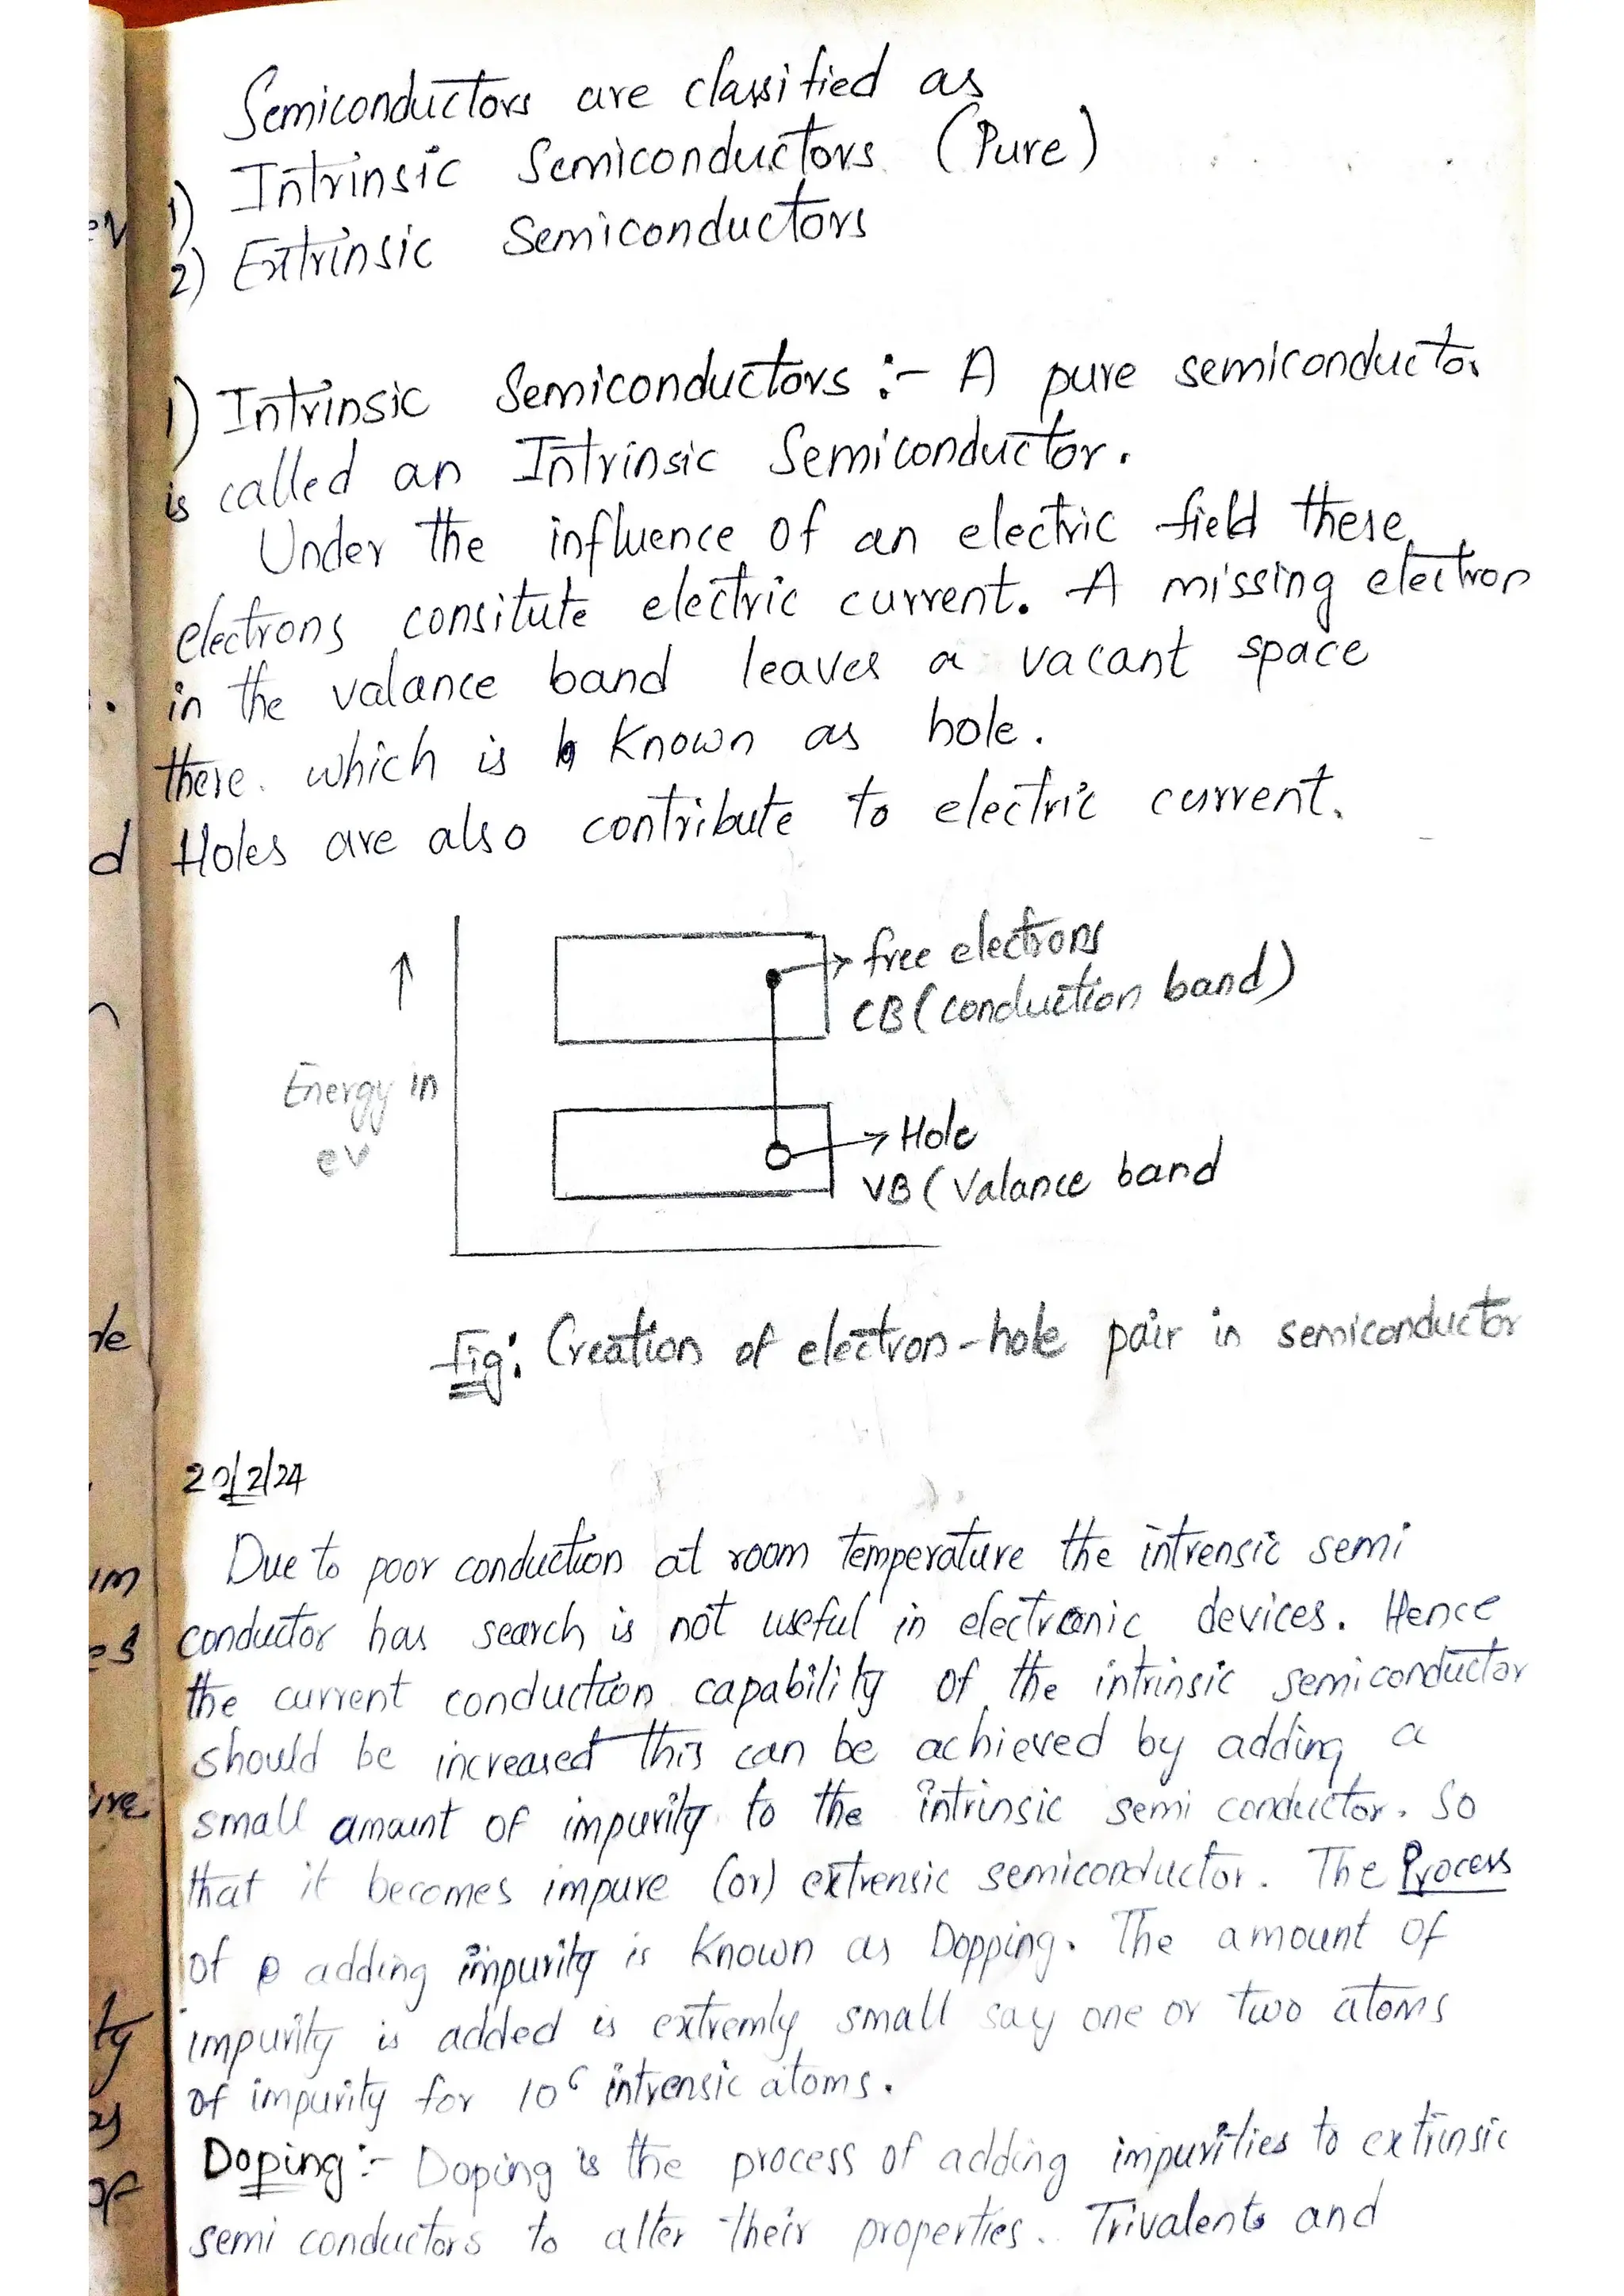 Semiconductors are classified as
1) Intrinsic Semiconductors (Pure)
2) Extrinsic Semiconductors
1) Intrinsic Semiconductors :- A pure semiconductor
is called an Intrinsic Semiconductor.
Under the influence of an electric field these
electrons consitute electric current. A missing electron
in the valance band leaves a vacant space
there. which is known as hole.
Holes are also contribute to electric current.
↑
Energy in
ev
free electrons
CB (conduction band)
Hole
VB (Valance band
Fig: Creation of electron-hole pair in semiconductor
20/2/24
Due to poor conduction at room temperature the intrensic semi
conductor has search is not useful in electronic devices. Hence
the current conduction capability of the intrinsic semiconductor
should be increased this can be achieved by adding a
small amount of impurity to the intrinsic semi conductor. So
that it becomes impure (or) extrensic semiconductor. The Process
of adding impurity is known as Dopping. The amount of
impurity is added is extremly small say one or two atoms
of impurity for 10⁶ intrensic atoms.
Doping :- Doping is the process of adding impurities to extrinsic
semi conductors to alter their properties. Trivalents and